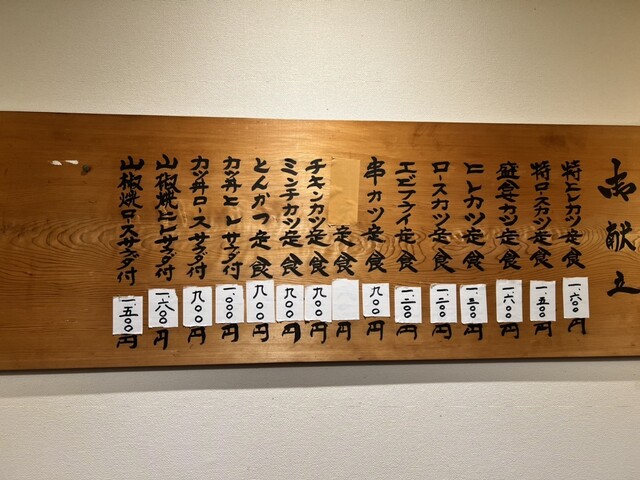 お献立
特ヒレカツ定食 一六〇〇円
特ロースカツ定食 一五〇〇円
盛合セカツ定食 一六〇〇円
ヒレカツ定食 一三〇〇円
ロースカツ定食 一二〇〇円
エビフライ定食 一二〇〇円
串カツ定食 九〇〇円
定食 円
チキンカツ定食 九〇〇円
ミンチカツ定食 九〇〇円
とんかつ定食 九〇〇円
カツ丼ヒレサラダ付 一〇〇〇円
カツ丼ロースサラダ付 九〇〇円
山椒焼ヒレサラダ付 一六〇〇円
山椒焼ロースサラダ付 一五〇〇円